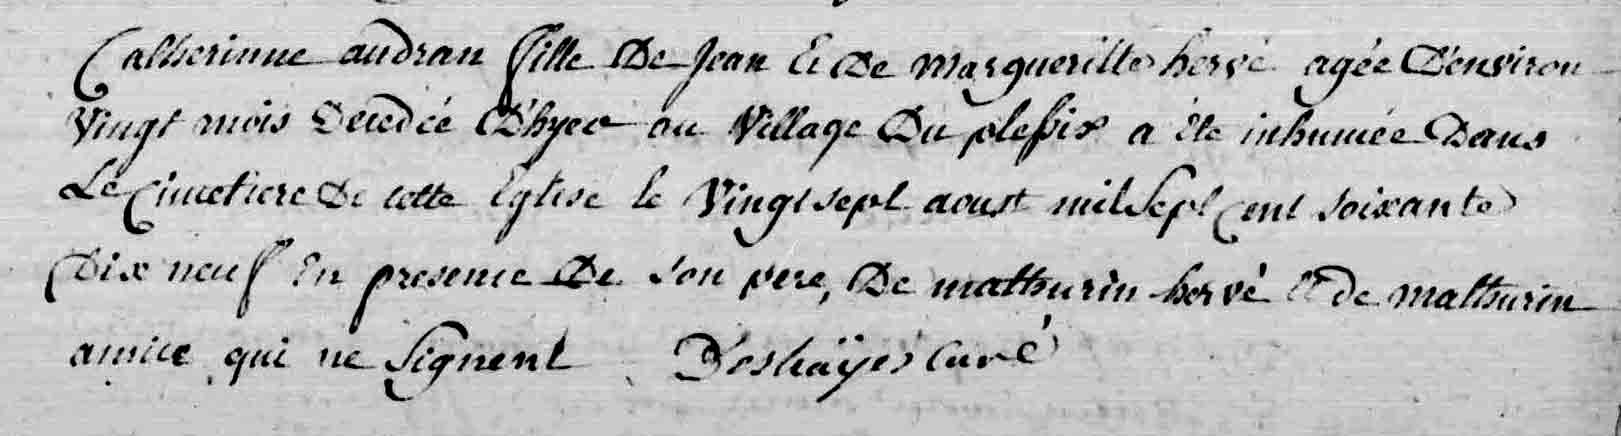 Catherinne audran fille De Jean Et De Margueritte hervé agée D'environ
Vingt mois Decedée D'hyer au Village Du plessix a été inhumée Dans
Le Cimetiere De cette Eglise le Vingt sept aoust mil Sept Cent soixante
Dix neuf En presence De son pere, De mathurin hervé et de mathurin
amice qui ne Signent Deshäÿes Curé